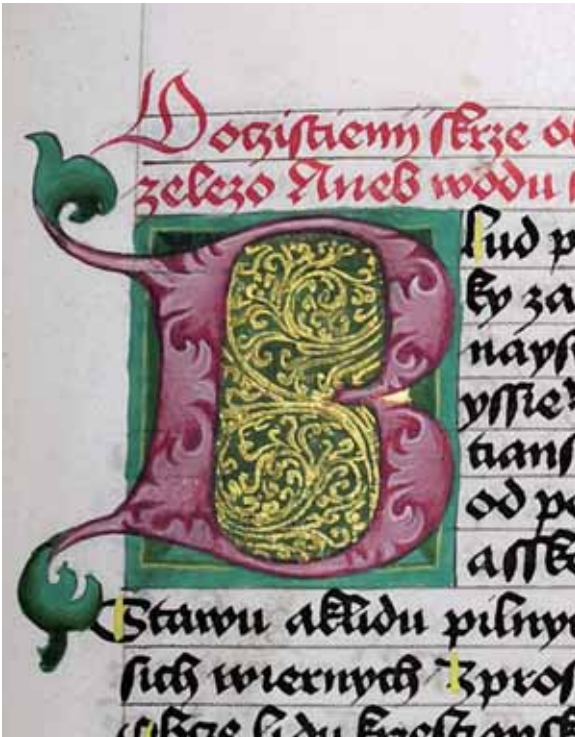 O oczistieny skrze o
zelezo Aneb wodu
B lud p
ky za
nays
yssie
tians
od po
asske
Stawu aklidu pilny
sich wiernych Zpros
obcze lidu krzestiansk